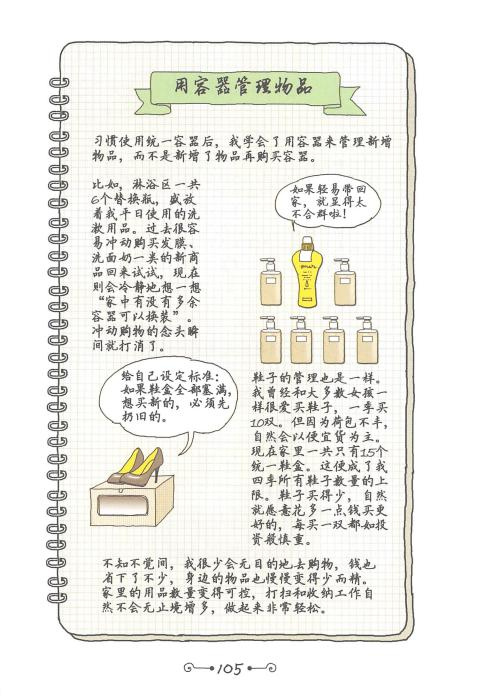 用容器管理物品
习惯使用统一容器后，我学会了用容器来管理新增
物品，而不是新增了物品再购买容器。
比如，淋浴区一共
6个替换瓶，盛放
着我平日使用的洗
漱用品。过去很容
易冲动购买发膜、
洗面奶一类的新商
品回来试试，现在
则会冷静地想一想
“家中有没有多余
容器可以换装”。
冲动购物的念头瞬
间就打消了。
如果轻易带回
家，就显得太
不合群啦！
给自己设定标准：
如果鞋盒全部塞满，
想买新的，必须先
扔旧的。
鞋子的管理也是一样。
我曾经和大多数女孩一
样很爱买鞋子，一季买
10双。但因为荷包不丰，
自然会以便宜货为主。
现在家里一共只有15个
统一鞋盒。这便成了我
四季所有鞋子数量的上
限。鞋子买得少，自然
就愿意花多一点钱买更
好的，每买一双都如投
资般慎重。
不知不觉间，我很少会无目的地去购物，钱也
省下了不少，身边的物品也慢慢变得少而精。
家里的用品数量变得可控，打扫和收纳工作自
然不会无止境增多，做起来非常轻松。
105